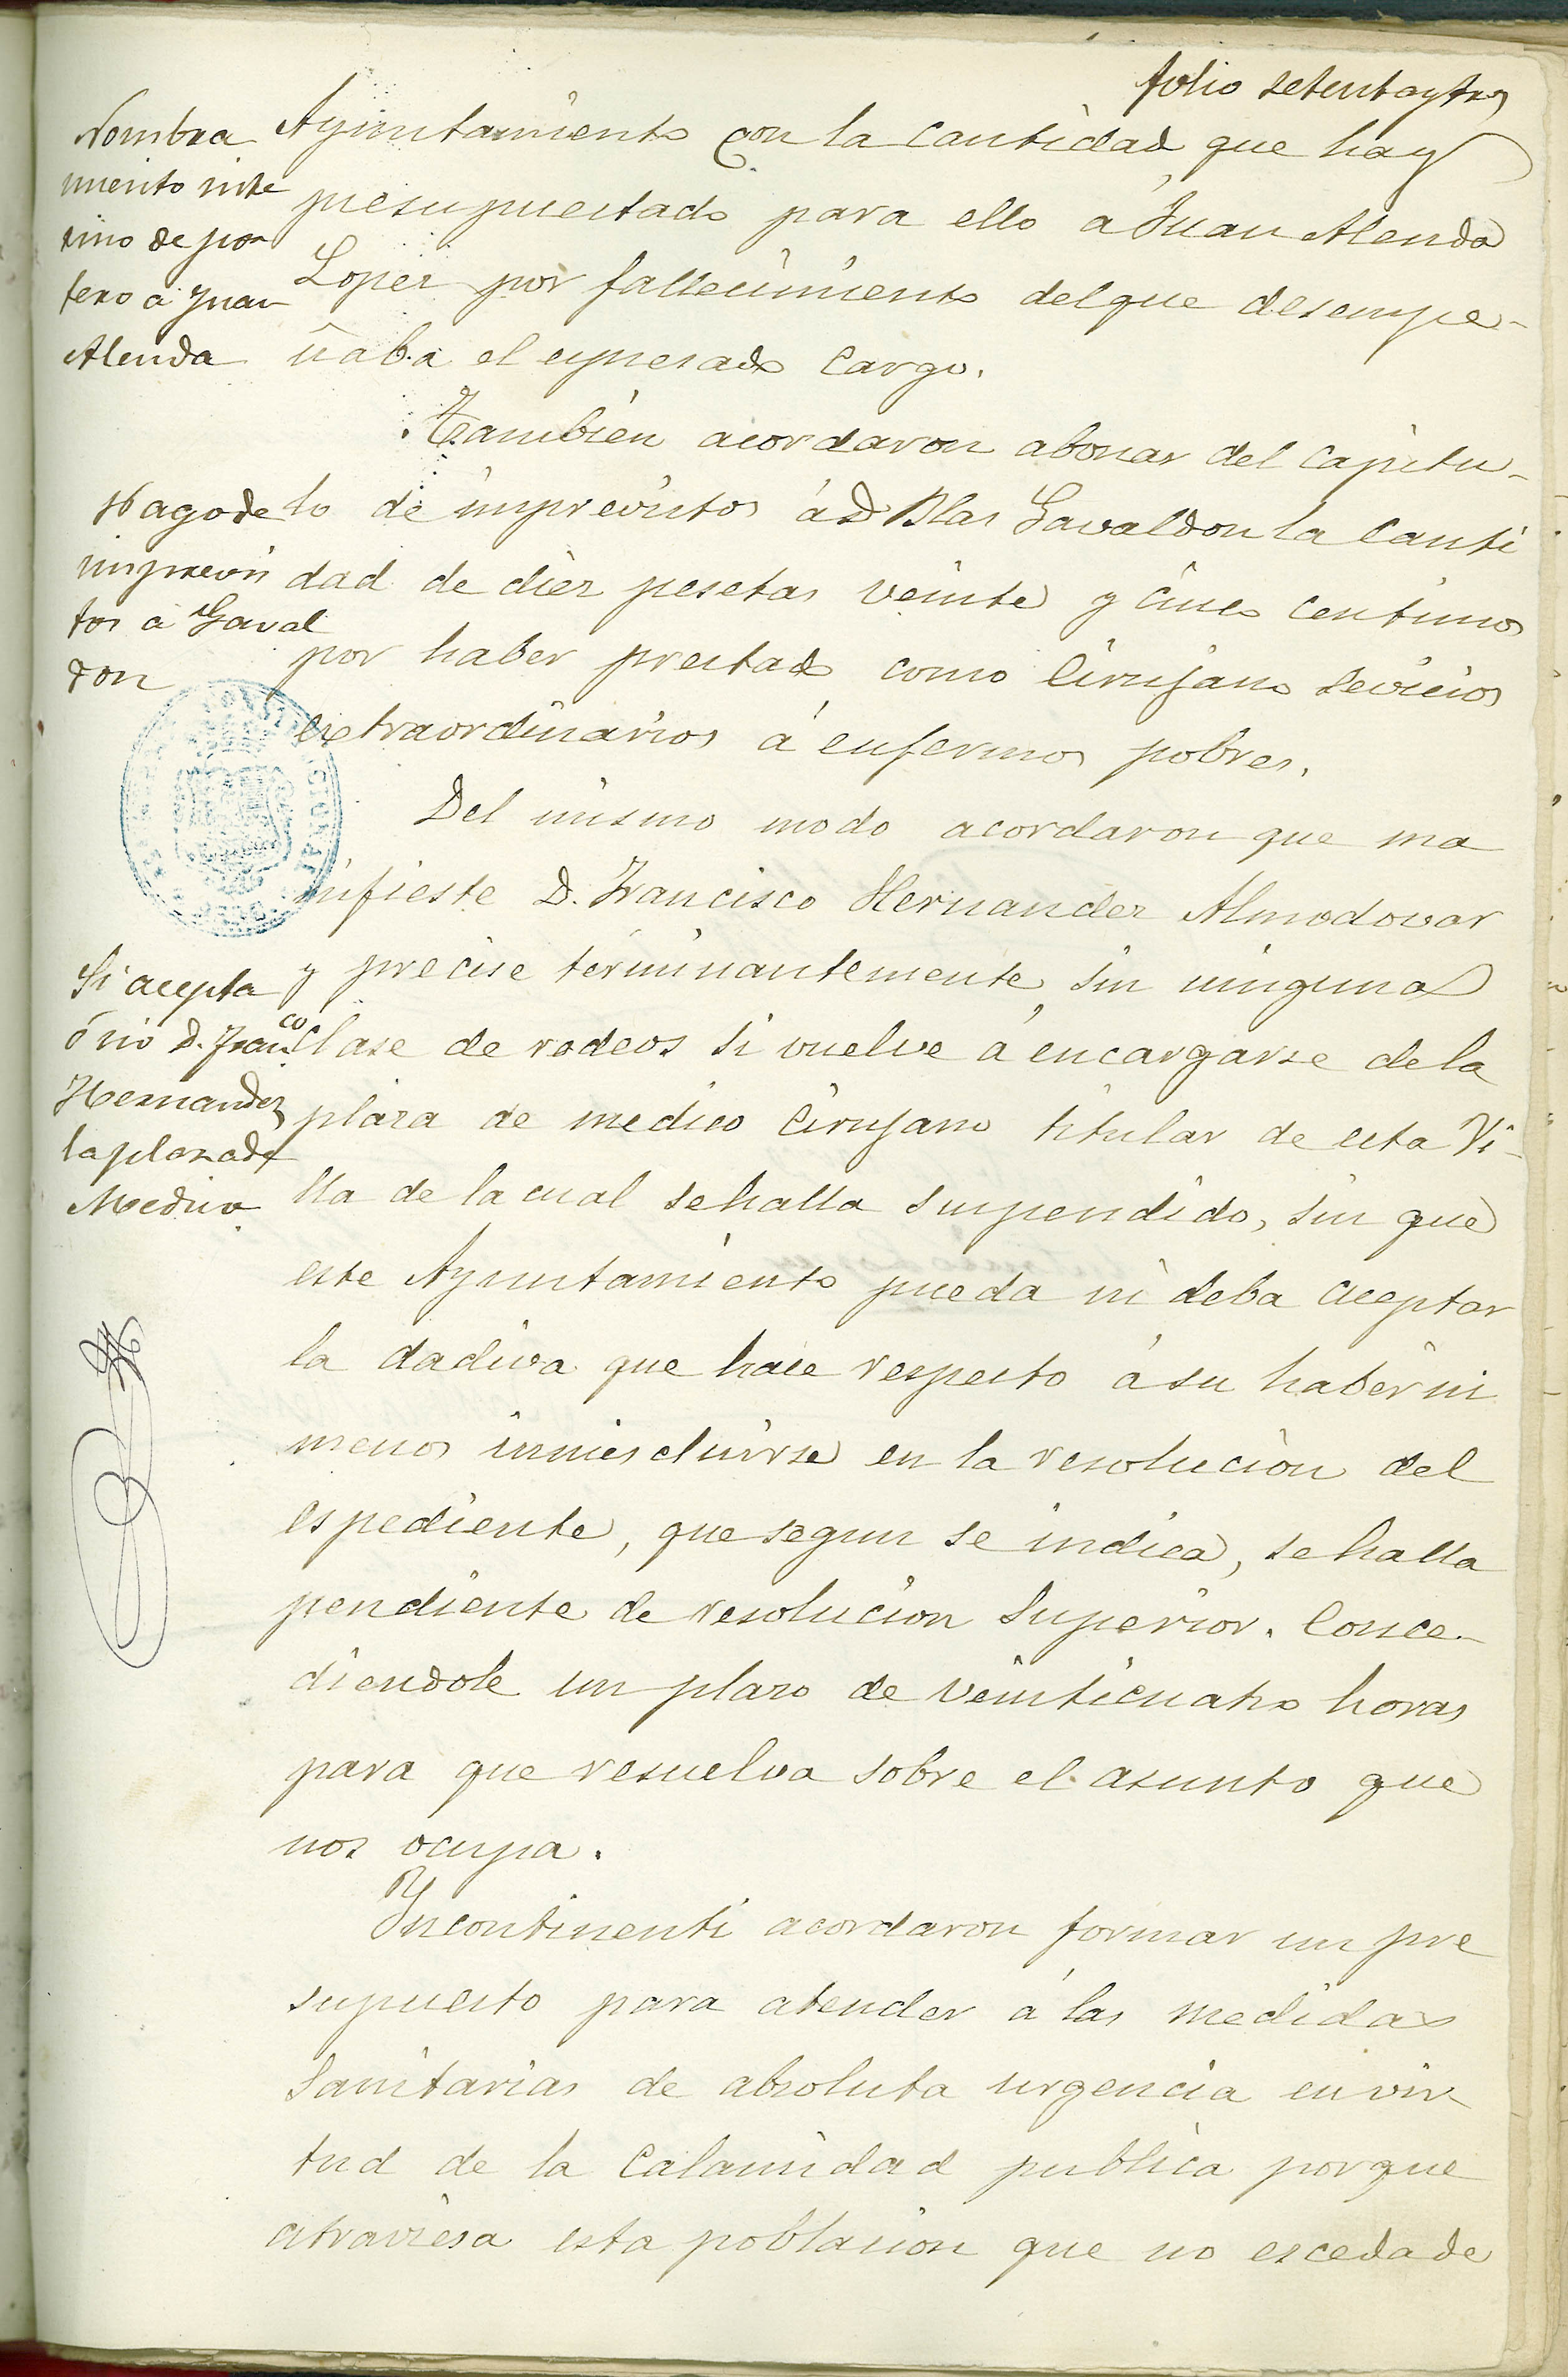 folio setentaytres
Nombra
miento inte
rino de por
tero á Juan
Alenda
Ayuntamiento con la cantidad que hay
presupuestado para ello á Juan Alenda
Lopez por fallecimiento del que desempe-
ñaba el espresado cargo.
Tambien acordaron abonar del capitu-
Pago de
imprevis
tos á Gaval
don
lo de imprevistos á D Blas Gavaldon la canti
dad de diez pesetas veinte y cinco centimos
por haber prestado como Cirujano sevicios
extraordinarios á enfermos pobres.
Del mismo modo acordaron que ma
nifieste D. Francisco Hernandez Almodovar
Si acepta
ó no D. Franco
Hernandez
la plaza de
Medico
y precise terminantemente sin ninguna
clase de rodeos si vuelve á encargarse de la
plaza de medico Cirujano titular de esta Vi-
lla de la cual se halla suspendido, sin que
este Ayuntamiento pueda ni deba aceptar
la dadiva que hace respecto á su haber ni
menos inmiscluirse en la resolucion del
espediente, que segun se indica, se halla
pendiente de resolucion Superior. Conce-
diendole un plazo de veinticuatro horas
para que resuelva sobre el asunto que
nos ocupa.
Yncontinenti acordaron formar un pre
supuesto para atender á las medidas
Sanitarias de absoluta urgencia en vir-
tud de la Calamidad publica porque
atraviesa esta poblacion que no esceda de